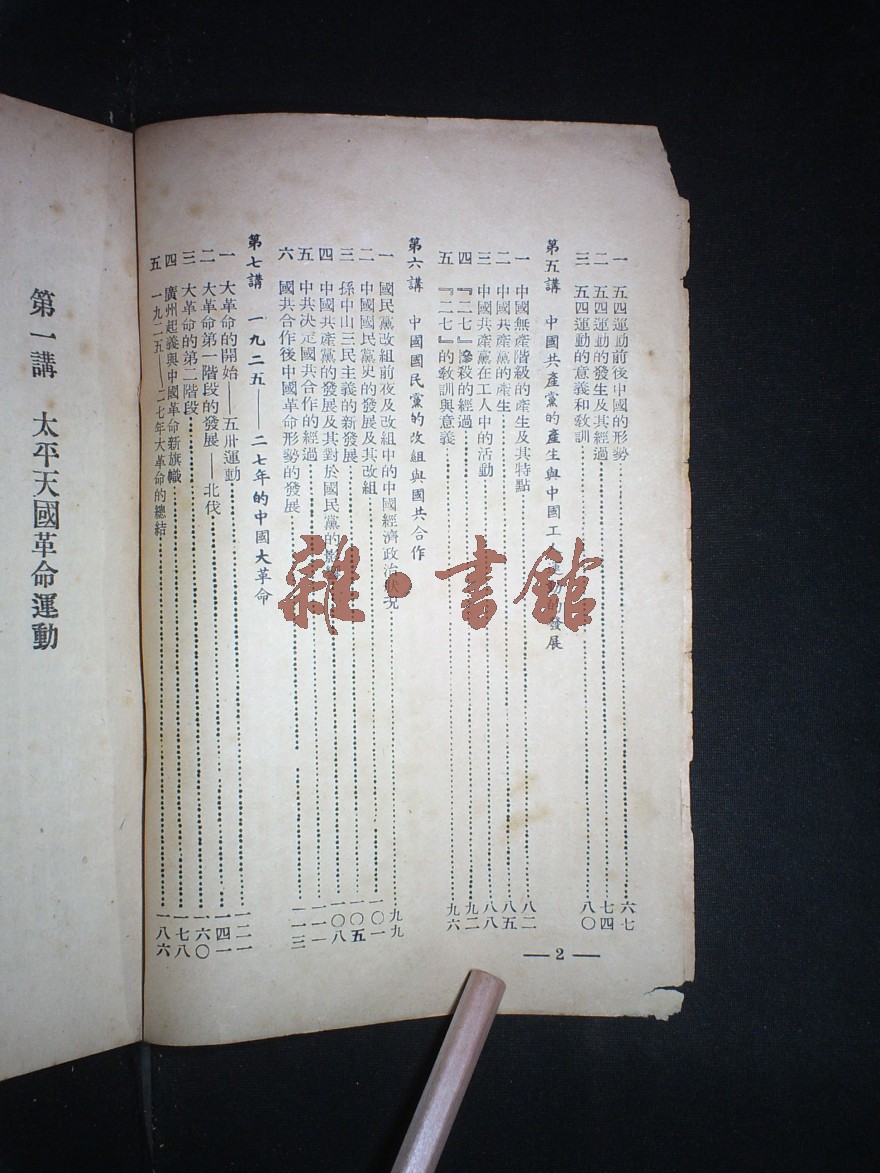 一 五四運動前後中國的形勢……六七
二 五四運動的發生及其經過……七四
三 五四運動的意義和敎訓……八〇
第五講 中國共產黨的產生與中國工人運動的發展
一 中國無產階級的產生及其特點……八二
二 中國共產黨的產生……八五
三 中國共產黨在工人中的活動……八八
四 『二七』慘殺的經過……九二
五 『二七』的敎訓與意義……九六
第六講 中國國民黨的改組與國共合作
一 國民黨改組前夜及改組中的中國經濟政治狀況……九九
二 中國國民黨史的發展及其改組……一〇一
三 孫中山三民主義的新發展……一〇五
四 中國共產黨的發展及其對於國民黨的影……一〇八
五 中共決定國共合作的經過……一一一
六 國共合作後中國革命形勢的發展……一一三
第七講 一九二五——二七年的中國大革命
一 大革命的開始——五卅運動……一二一
二 大革命第一階段的發展——北伐……一四一
三 大革命的第二階段……一六〇
四 廣州起義與中國革命新旗幟……一七八
五 一九二五——二七年大革命的總結……一八六
— 2 —
第一講 太平天國革命運動
雜·書館